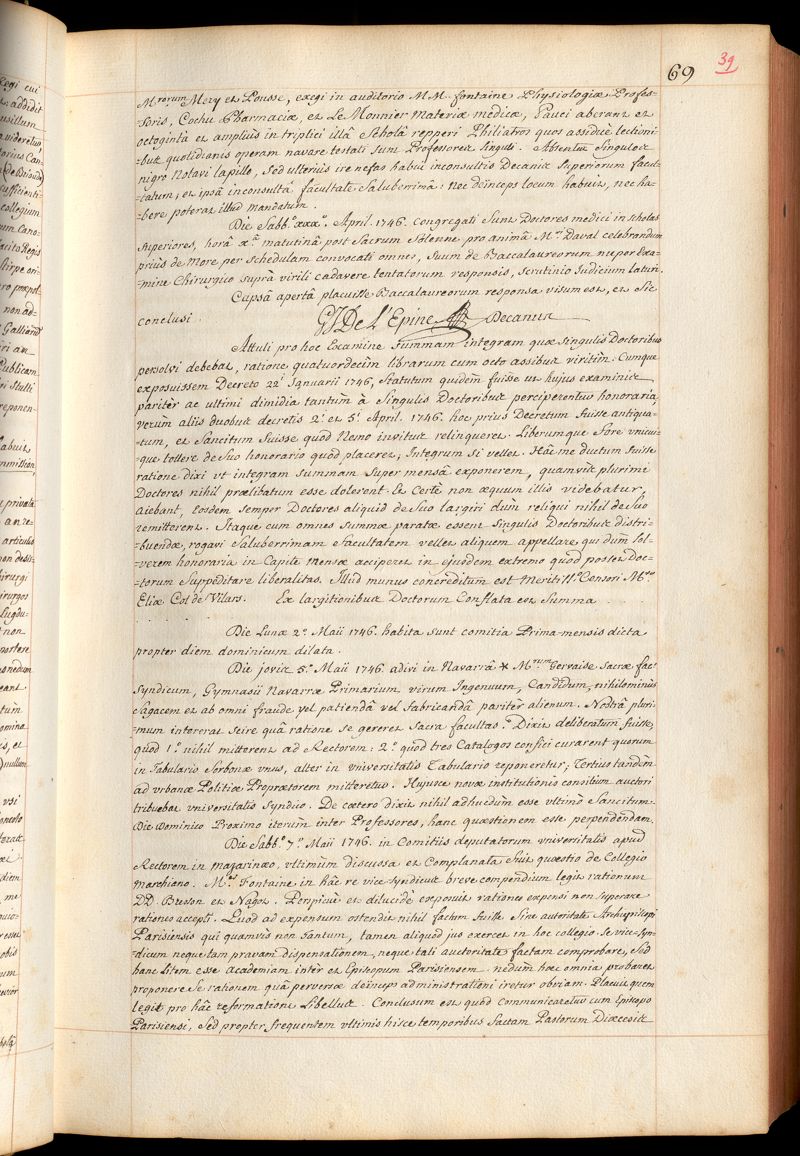 69
39
Mrorum Mery et Pousse, exegi in auditorio MM. fontaine Physiologiæ Profes=
=soris, Cochu Pharmaciæ, et Le Monnier materiæ medicæ, Pauci aberant et
octoginta et ampliùs in triplici illâ Scholâ repperi Philiatros quos assiduè lectioni=
=bus quotidianis operam navare testati sunt Professores singuli. Absentes singulos
nigro notavi lapillo, sed ulteriùs ire nefas habui inconsultis Decaniæ Superiorum facul=
=tatum, et ipsâ inconsultâ facultate Saluberrimâ: nec deinceps locum habuit, nec ha=
=bere poterat illud mandatum.
Die Sabb.o xxx.o April. 1746. Congregati sunt Doctores medici in scholas
superiores, horâ x.â matutinâ post sacrum solenne pro animâ M.ri Daval celebrandum
priùs de More per schedulam convocati omnes, suum de Baccalaureorum nuper Exa=
=mine Chirurgico suprà virili cadavere tentatorum responsis, scrutinio Judicium laturi.
Capsâ apertâ placuisse Baccalaureorum responsa visum est, et sic
conclusi. GJ De L'Epine Decanus
Attuli pro hoc Examine Summam integram quæ singulis Doctoribus
persolvi debebat, ratione quatuordecim librarum cum octo assibus viritim: Cumque
exposuissem Decreto 22.i Januarii 1746, statutum quidem fuisse ut hujus examinis
pariter ac ultimi dimidia tantùm à singulis Doctoribus perciperentur honoraria,
verùm aliis duobus decretis 2.i et 5.i April. 1746. hoc prius Decretum fuisse antiqua=
=tum, et Sancitum fuisse quod nemo invitus relinqueret. Liberumque fore unicui=
=que tollere de suo honorario quod placeret, Integrum si vellet. Hâc me ductum fuisse
ratione dixi ut integram summam super mensâ exponerem, quamvis plurimi
Doctores nihil prælibatum esse dolerent. Et Certè non æquum illis videbatur,
aiebant, Eosdem semper Doctores aliquid de suo largiri dum reliqui nihil de suo
remitterent. Itaque cum omnes summæ paratæ essent singulis Doctoribus distri=
=buendæ, rogavi Saluberrimam facultatem vellet aliquem appellare qui dum sol=
=verem honoraria in Capite mensæ acciperet in ejusdem extremo quod posset Doc=
=torum suppeditare liberalitas. Illud munus concreditum est Meritiss.o Censori M.ro
Eliæ Col de Vilars. Ex largitionibus Doctorum Conflata est Summa . . . .
. . . . . .
Die Lunæ 2.a Maii 1746. habita sunt comitia Prima-mensis dicta
propter diem dominicum dilata.
Die jovis 5.a Maii 1746. adivi in Navarrâ * M.rum Gervaise Sacræ fac.s
Syndicum, Gymnasii Navarræ Primarium virum Ingenuum, Candidum, nihilominùs
sagacem et ab omni fraude vel patiendâ vel fabricandâ pariter alienum. Nostrâ pluri=
mum intererat scire quâ ratione se gereret Sacra facultas. Dixit deliberatum fuisse,
quod 1.o nihil mitterent ad Rectorem: 2.o quod tres Catalogos confici curarent quorum
in Tabulario Sorbonæ unus, alter in universitatis Tabulario reponeretur; Tertius tandem
ad urbanæ Politiæ Proprætorem mitteretur. Hujusce novæ institutionis consilium auctori
tribuebat universitatis Syndico. De cœtero dixit nihil adhucdum esse ultimò Sancitum.
Die Dominico Proximo iterum inter Professores, hanc quæstionem esse perpendendam.
Die Sabb.o 7.o Maii 1746. in Comitiis deputatorum universitatis apud
Rectorem in mazarinæo, ultimùm discussa et Complanata fuit quæstio de Collegio
marchiano. M.er Fontaine in hâc re vice syndicus breve compendium legit rationum
DD. Besson et Nagot. Perspicuè et dilucidè exposuit rationes expensi non superare
rationes accepti. Quod ad expensum ostendit nihil factum fuisse sine autoritate Archiepiscopi
Parisiensis qui quamvis non santum, tamen aliquod jus exercet in hoc collegio. Se vice-Syn=
=dicum neque tam pravam dispensationem, neque tali auctoritate factam comprobare, Sed
hanc litem esse academiam inter et Episcopum Parisiensem nedum hæc omnia probaret
proponere se rationem quâ perversæ deinceps administrationi iretur obviam. Placuit quem
legit pro hâc reformatione Libellus. Conclusum est quod communicaretur cum Episcopo
Parisiensi, Sed propter frequentem ultimis hisce temporibus factam Pastorum Diœcesis